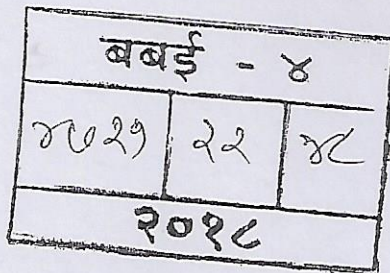 बबई - ४
४७२१ २२ ४८
२०१८